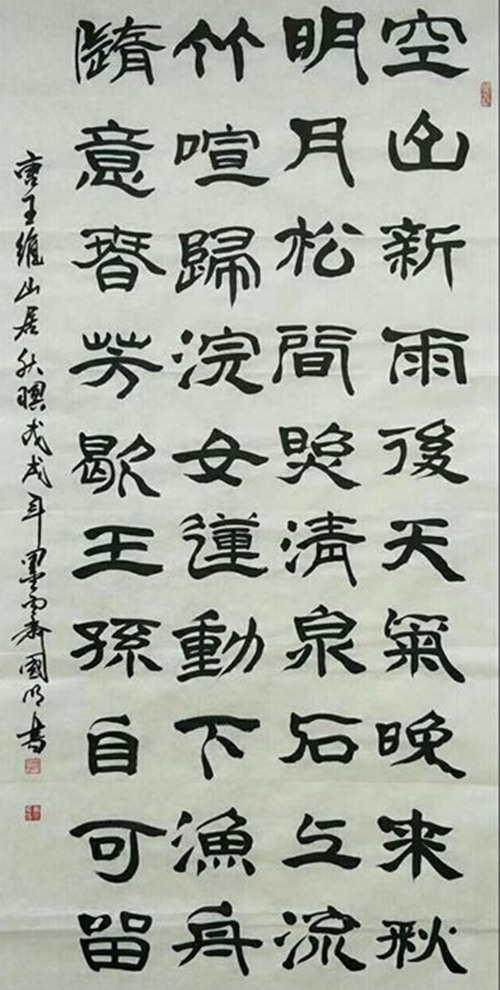 空山新雨後天氣晚來秋
明月松間照清泉石上流
竹喧歸浣女蓮動下漁舟
隨意春芳歇王孫自可留
唐王維山居秋暝戊戌年墨國明書